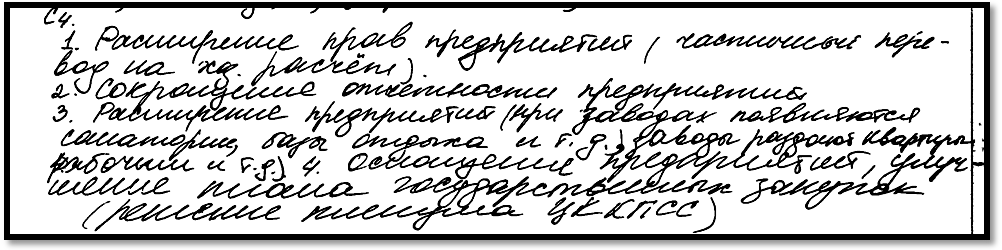 С4.
1. Расширение прав предприятий (частичный пере-
вод на хд. расчёт).
2. Сокращение отчётности предприятий
3. Расширение предприятий (при заводах появляются
санатории, базы отдыха и т.д.) заводы раздают квартиры
рабочим и т.д.) 4. Оснащение предприятий, улуч-
шение плана государственных закупок
(решение пленума ЦК КПСС)